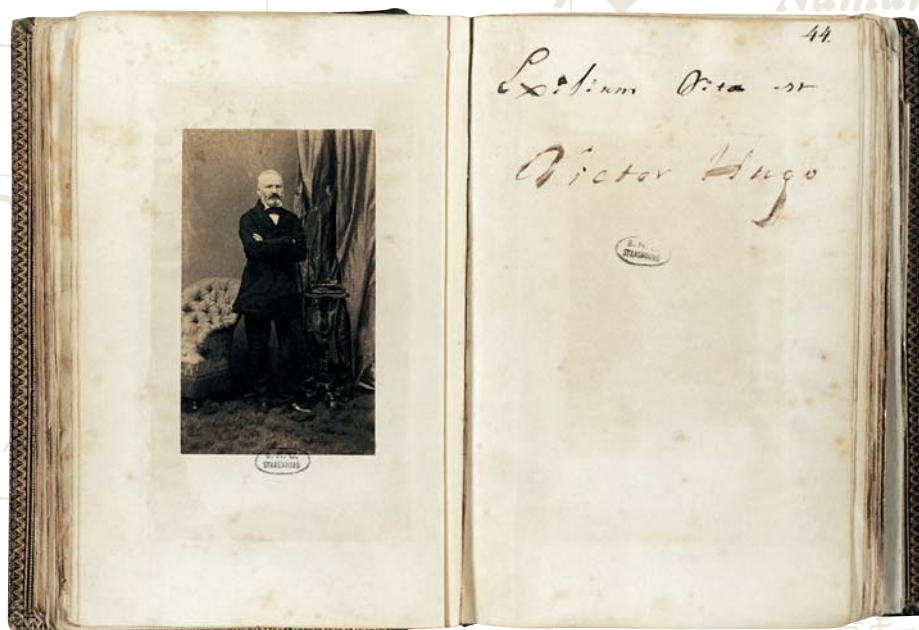 Namur
44.
Exilium Vita est
Victor Hugo
B. N. U.
STRASBOURG
B. N. U.
STRASBOURG